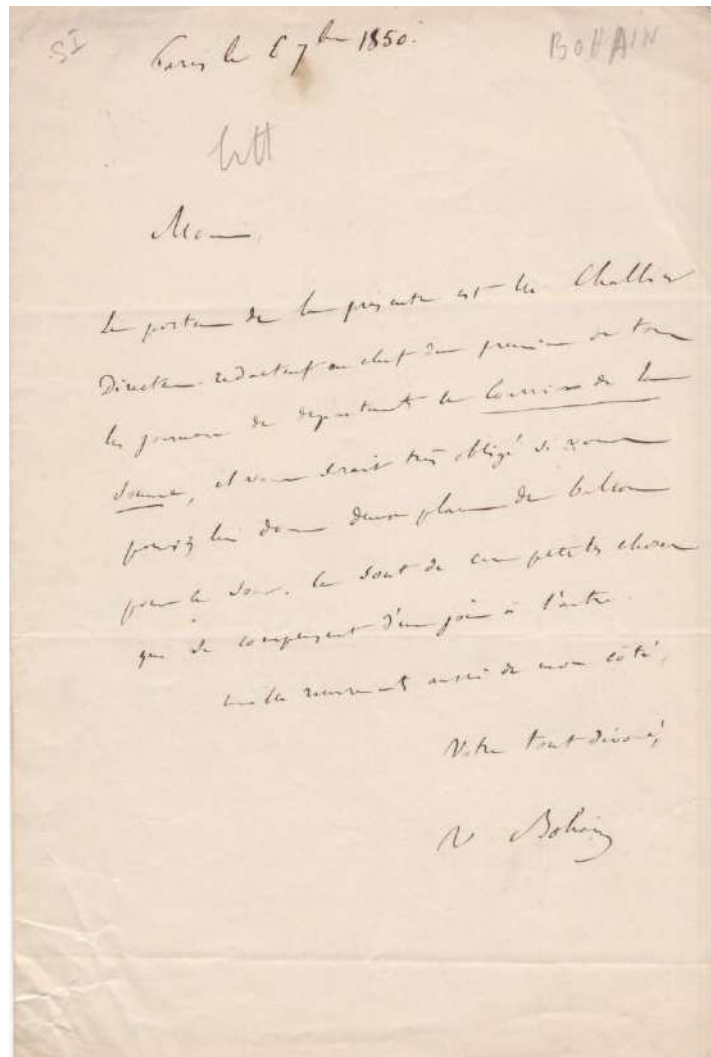 SI
BOHAIN
Paris le 7bre 1850.
litt
Monsieur,
Le porteur de la présente est Mr Challier
Directeur rédacteur en chef du premier de tous
les journaux de départements le Courrier de la
Somme, il vous serait très obligé si vous
pouviez lui donner deux places de balcon
pour ce soir. Ce sont de ces petites choses
qui se compensent d'un jour à l'autre.
remerciements aussi de mon côté,
Votre tout dévoué,
V Bohain